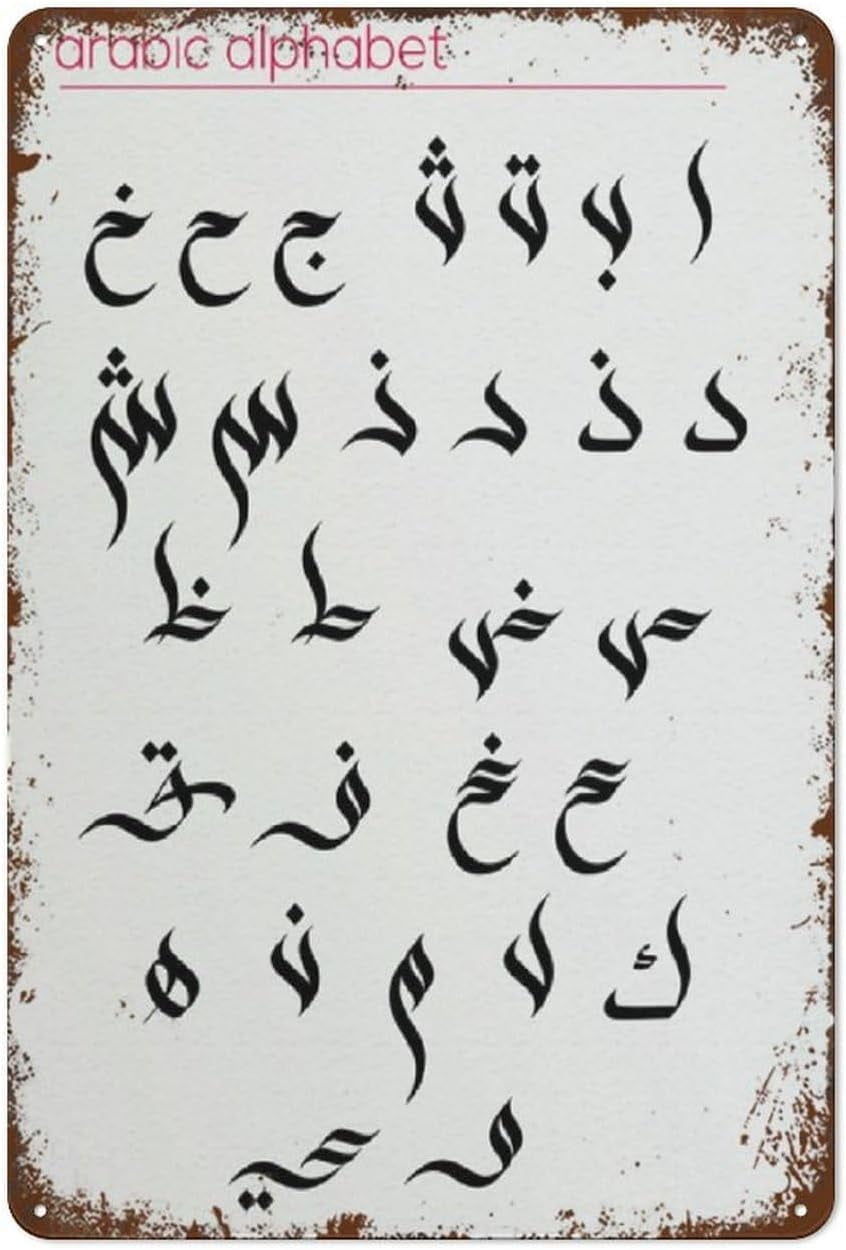 arabic alphabet
ا ب ت ث ج ح خ
د ذ ر ز س ش
ص ض ط ظ
ع غ ف ق
ك ل م ن ه
و ي